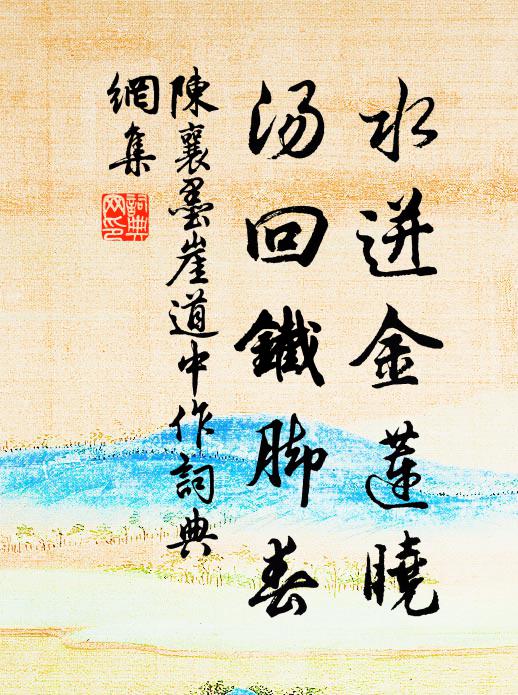 水迸金蓮曉
汤回鐵脚春
陳襄墨崖道中作詞典
網集
詞典
网印